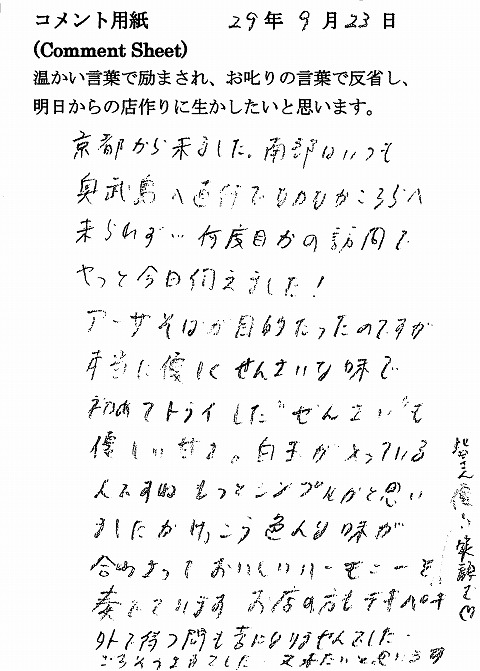 コメント用紙 29年 9月23日
(Comment Sheet)
温かい言葉で励まされ、お叱りの言葉で反省し、
明日からの店作りに生かしたいと思います。
京都から来ました。南部はいつも
奥武島へ直行でなかなかこちらへ
来られず… 何度目かの訪問で
やっと今日伺えました!
アーサそばが目的だったのですが
本当に優しくせんさいな味で
初めてトライした"ぜんざい"も
優しい甘さ。白玉が入っている
んですね もっとシンプルかと思い
ましたが けっこう色んな味が
合わさって おいしいハーモニーを
奏でています お店の方もテキパキ
外で待つ間も苦になりませんでした。
ごちそうさまでした。 又来たいと思い
皆さん優しい 笑顔で